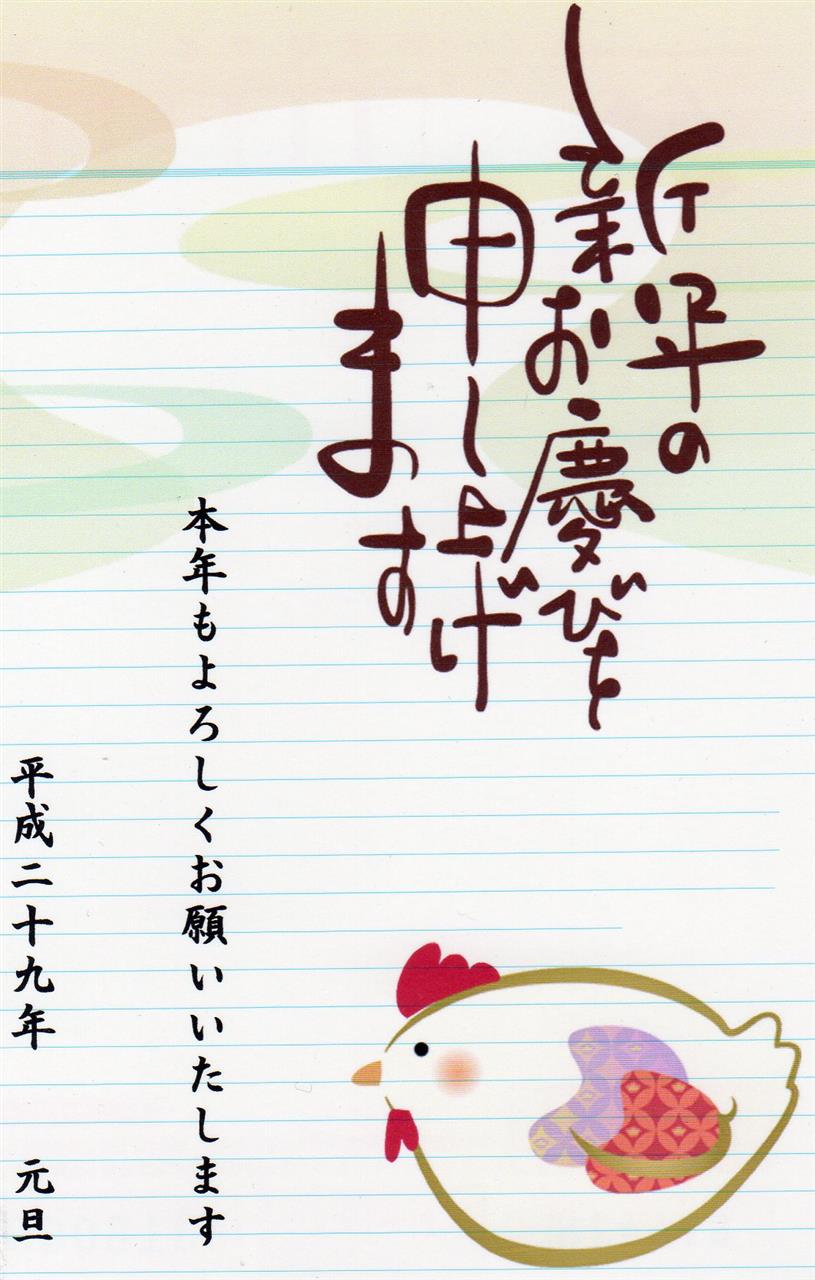 新年の
お慶びを
申し上げ
ます
本年もよろしくお願いいたします
平成二十九年 元旦